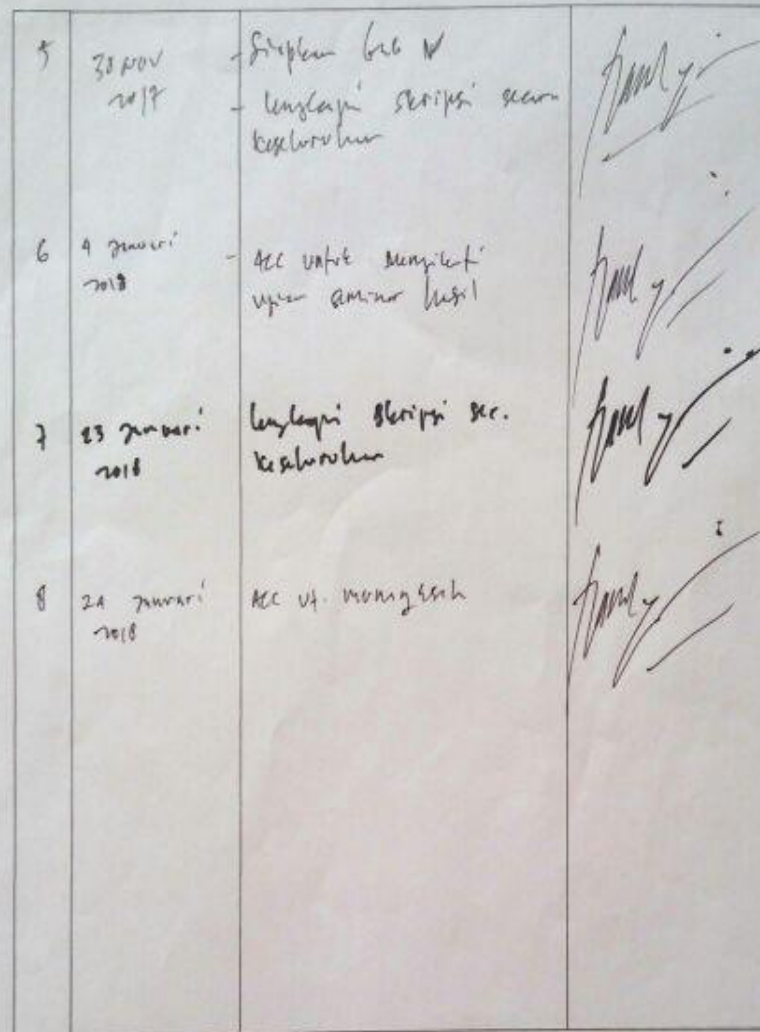 5
30 NOV
2017
- Siapkan bab IV
- lengkapi skripsi secara
keseluruhan
6
4 Januari
2018
- ACC untuk mengikuti
ujian seminar hasil
7
23 Januari
2018
lengkapi skripsi sec.
keseluruhan
8
24 Januari
2018
ACC ut.